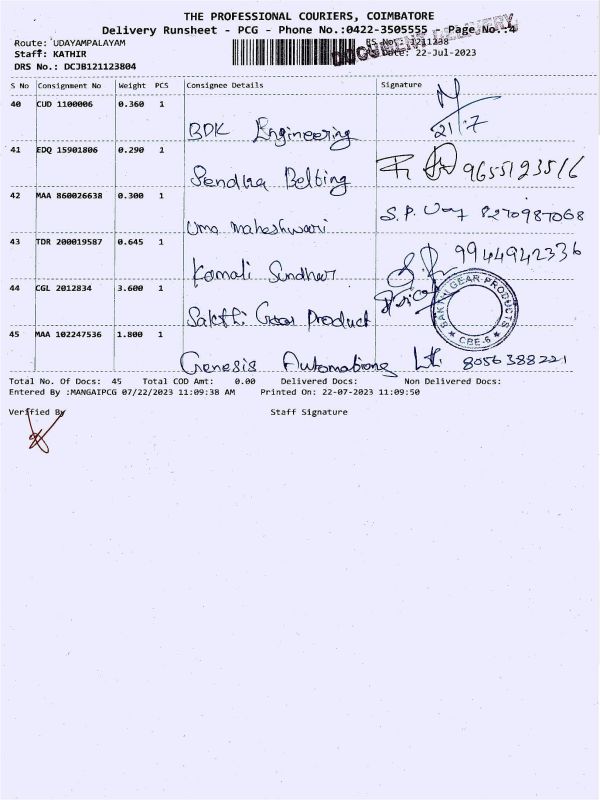 THE PROFESSIONAL COURIERS, COIMBATORE
Delivery Runsheet - PCG - Phone No.:0422-3505555 - Page No.:4
DOCUMENT DELIVERY
Route: UDAYAMPALAYAM
Staff: KATHIR 22-Jul-2023
DRS No.: DCJB121123804
S No Consignment No Weight PCS Consignee Details Signature
40 CUD 1100006 0.360 1
BDK Engineering 21/7
41 EDQ 15901806 0.290 1
Belting 9655123516
42 MAA 860026638 0.300 1
Uma maheshwari S.P. 8270987068
43 TDR 200019587 0.645 1
Kamali 9944942336
44 CGL 2012834 3.600 1
Sakthi Gear Product
SAKTHI GEAR PRODUCTS ★ CBE-6 ★
45 MAA 102247536 1.800 1
Genesis Automations Lt. 8056388221
Total No. Of Docs: 45 Total COD Amt: 0.00 Delivered Docs: Non Delivered Docs:
Entered By :MANGAIPCG 07/22/2023 11:09:38 AM Printed On: 22-07-2023 11:09:50
Verified By Staff Signature